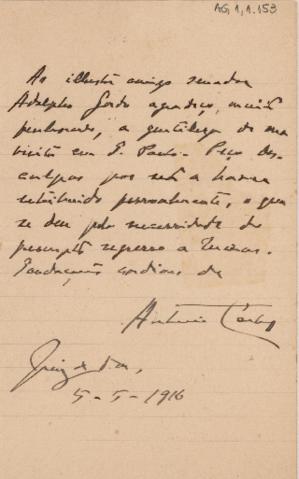 AG 1, 1. 153
Ao illustre amigo senador
Adolpho Gordo agradeço, muito
penhorado, a gentileza de sua
visita em S. Paulo. Peço des-
culpas por não a haver
retribuido pessoalmente, o que
se deu pela necessidade de
regresso a
Saudações cordiaes de
Antonio Carlos
Juiz de Fóra,
5-5-1916